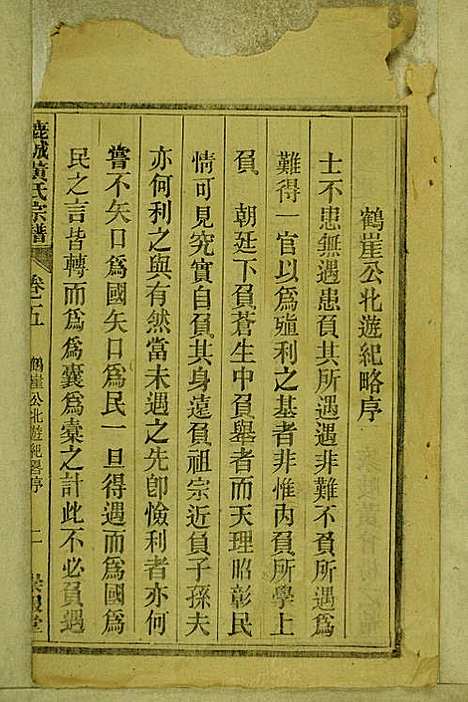 鶴崖公北遊紀略序
士不患無遇患負其所遇遇非難不負所遇爲
難得一官以爲殖利之基者非惟內負所學上
負 朝廷下負蒼生中負舉者而天理昭彰民
情可見究實自負其身遠負祖宗近負子孫夫
亦何利之與有然當未遇之先卽憸利者亦何
嘗不矢口爲國矢口爲民一旦得遇而爲國爲
民之言皆轉而爲爲囊爲橐之計此不必負遇
鹿城黃氏宗譜 卷之五 鶴崖公北遊紀畧序 二 堂